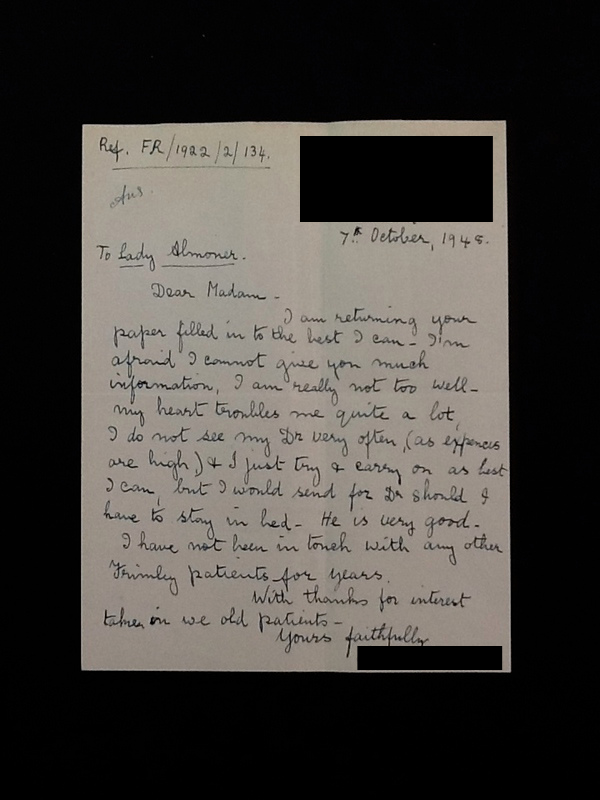 Ref. FR/1922/2/134.
Ans.
7th October, 1945.
To Lady Almoner.
Dear Madam -
I am returning your
paper filled in to the best I can - I'm
afraid I cannot give you much
information, I am really not too well -
my heart troubles me quite a lot,
I do not see my Dr very often, (as expences
are high,) & I just try & carry on as best
I can, but I would send for Dr should I
have to stay in bed - He is very good -
I have not been in touch with any other
Frimley patients for years.
With thanks for interest
taken in we old patients -
Yours faithfully